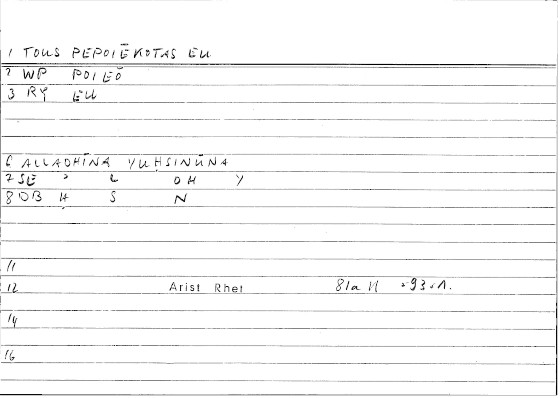 1 TOUS PEPOIĒKOTAS EU
2 WP POIEŌ
3 RY EU
6 ALLADHĪNA YUHSINŪNA
7 SE ɔ L DH Y
8 OB H S N
11
12 Arist Rhet 81a
14
16